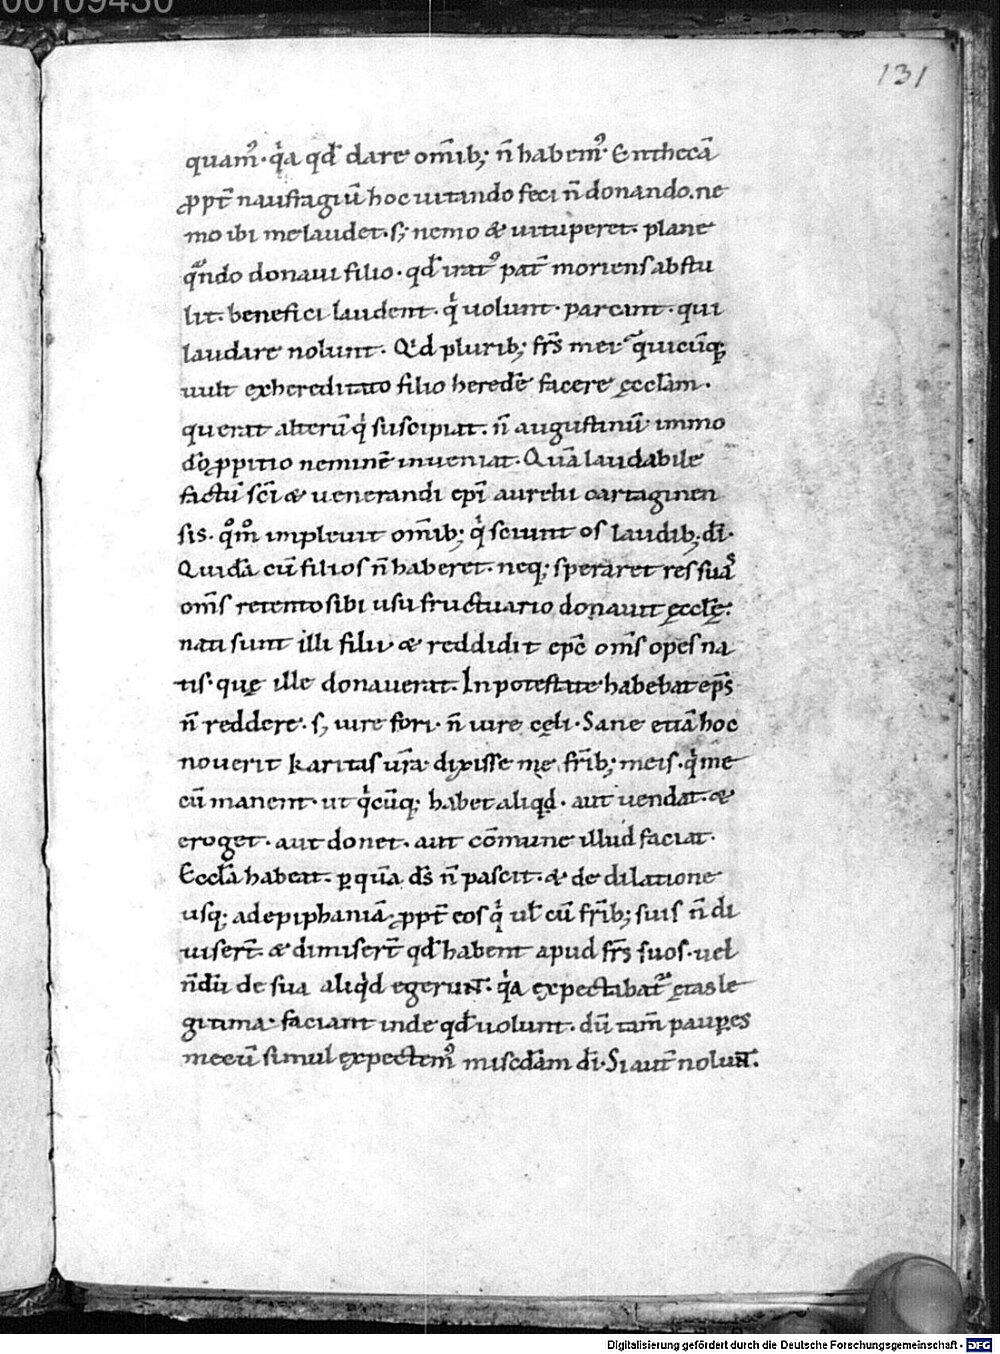 00109430
131
quam᷒· qͥa qđ dare om̅ib; n̅ habem᷒· Enthecā
ꝓpt̅ naufragiū hoc uitando feci n̅ donando. ne
mo ibi me laudet. s; nemo & uituperet. plane
qͣndo donaui filio· qđ irat᷒ pat̅ moriens abstu
lit. benefici laudent· qͥ uolunt· parcant· qui
laudare nolunt. Qͥd plurib; fr̅s mei quicūq;
uult exhereditato filio heredē facere ęccl̅am.
querat alterū qͥ suscipiat. n̅ augustinū immo
dō ꝓpitio neminē inueniat. Quā laudabile
factū sc̅i & uenerandi ep̅i aurelii cartaginen
sis. qͦm̊ impleuit om̅ib; qͥ sciunt os laudib; di̅.
Quidā cū filios n̅ haberet. neq; speraret res suas
om̅s retento sibi usu fructuario donauit ęccl̅ę.
nati sunt illi filii & reddidit ep̅c om̅s opes na
tis· quę ille donauerat. In potestate habebat ep̅s
n̅ reddere. s; iure fori· n̅ iure cęli. Sane etiā hoc
nouerit karitas ur̅a· dixisse me fr̅ib; meis· qͥ me
cū manent· ut qͥcūq; habet aliqͥd· aut uendat. &
eroget· aut donet. aut cōmune illud faciat.
Eccl̅a habeat. ꝑ quā ds̅ n̅ pascit. & de dilatione
usq; ad epiphaniā ꝓpt̅ eos qͥ ul̅ cū fr̅ib; suis n̅ di
uiser̅t. & dimiser̅t qđ habent apud fr̅s suos. uel
n̅dū de sua aliqͥd egerunt. qͥa expectabat᷒ ętas le
gitima· faciant inde qđ uolunt. dū tam̅ pauꝑes
mecū simul expectem᷒ mis̅cdiam di̅. Si aut̅ nolunt.
Digitalisierung gefördert durch die Deutsche Forschungsgemeinschaft - DFG